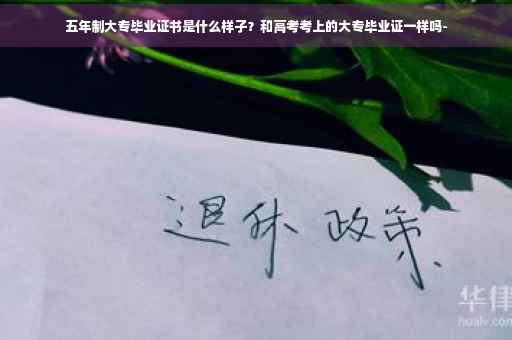 五年制大专毕业证书是什么样子？和高考考上的大专毕业证一样吗-
退休 政策
华律
hualv.com